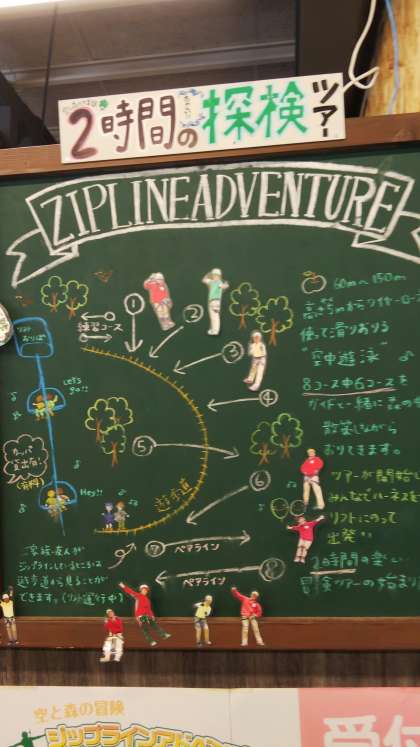 2時間の探検ツアー
ZIPLINE ADVENTURE
①
練習コース
②
③
④
⑤
⑥
遊歩道
⑦ ペアライン
⑧
ペアライン
リフト
おりば
Let's
go!!
カッパ
貸出有!
(有料)
Hey!!
ご家族・友人が
ジップラインしているところは
遊歩道から見ることが
できます。(リフト運行中)
60m〜150m
使って滑りおりる
"空中遊泳"
8コース中6コースを
ガイドと一緒に森の中
散策しながら
おりてきます。
ツアーが開始し
みんなでハーネスを
リフトにのって
出発!!
2時間の楽しい
冒険ツアーの始まり
空と森の冒険
ジップラインアドベ
受付